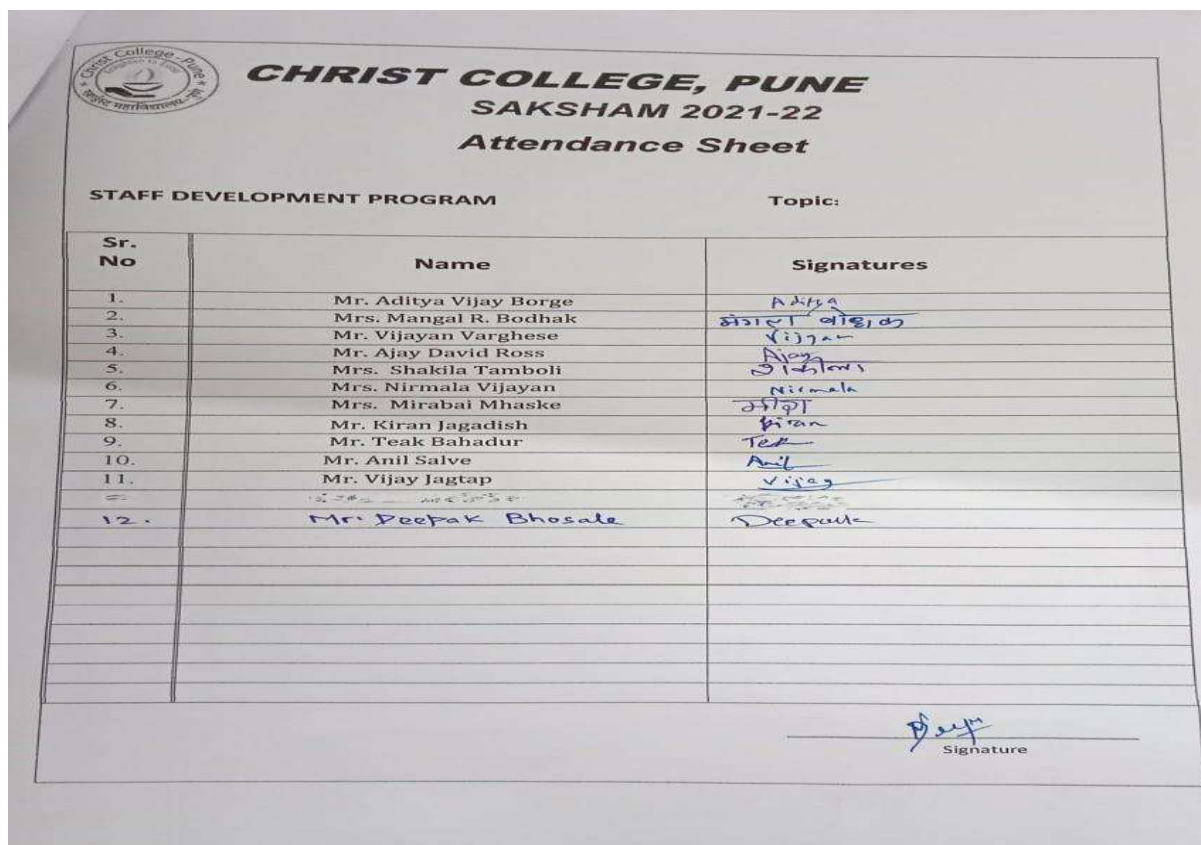 Christ College - Pune
ख्राइस्ट महाविद्यालय - पुणे
CHRIST COLLEGE, PUNE
SAKSHAM 2021-22
Attendance Sheet
STAFF DEVELOPMENT PROGRAM Topic:
Sr. No Name Signatures
1. Mr. Aditya Vijay Borge Aditya
2. Mrs. Mangal R. Bodhak मंगल बोधक
3. Mr. Vijayan Varghese Vijyan
4. Mr. Ajay David Ross Ajay
5. Mrs. Shakila Tamboli शकीला
6. Mrs. Nirmala Vijayan Nirmala
7. Mrs. Mirabai Mhaske मीरा
8. Mr. Kiran Jagadish Kiran
9. Mr. Teak Bahadur Tek
10. Mr. Anil Salve Anil
11. Mr. Vijay Jagtap Vijay
12. Mr. Deepak Bhosale Deepak
Signature